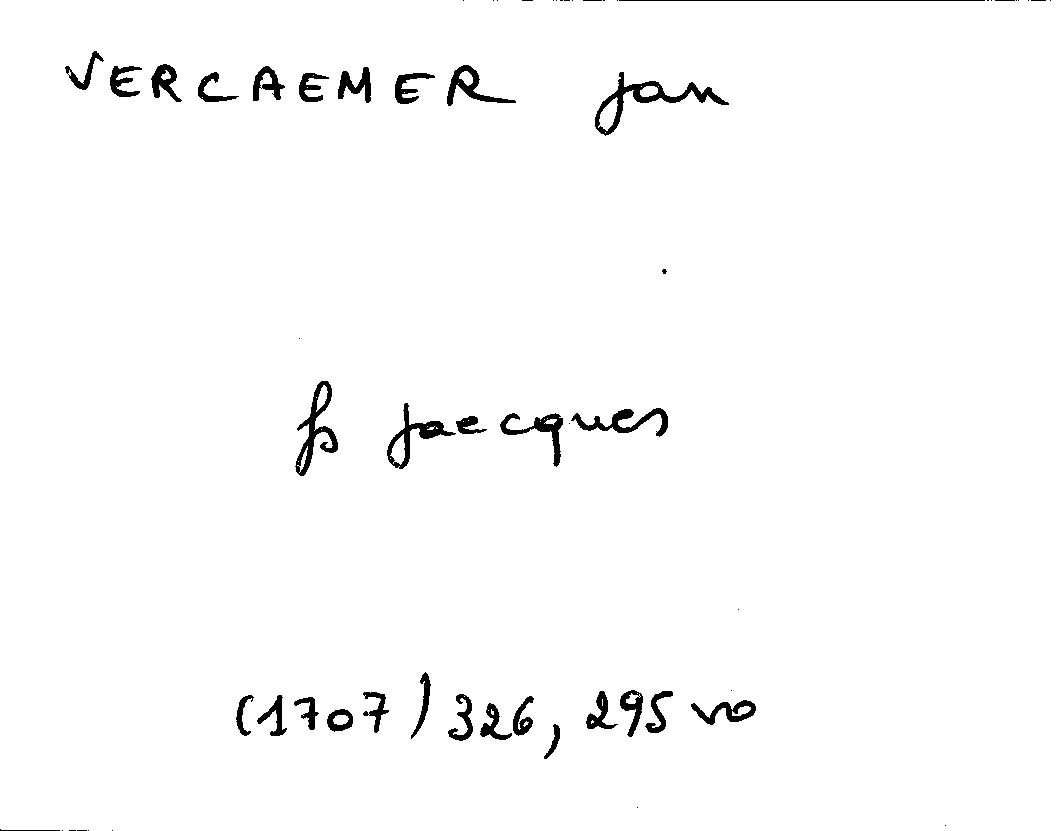 VERCAEMER jan
fs jaecques
(1707) 326, 295 vo